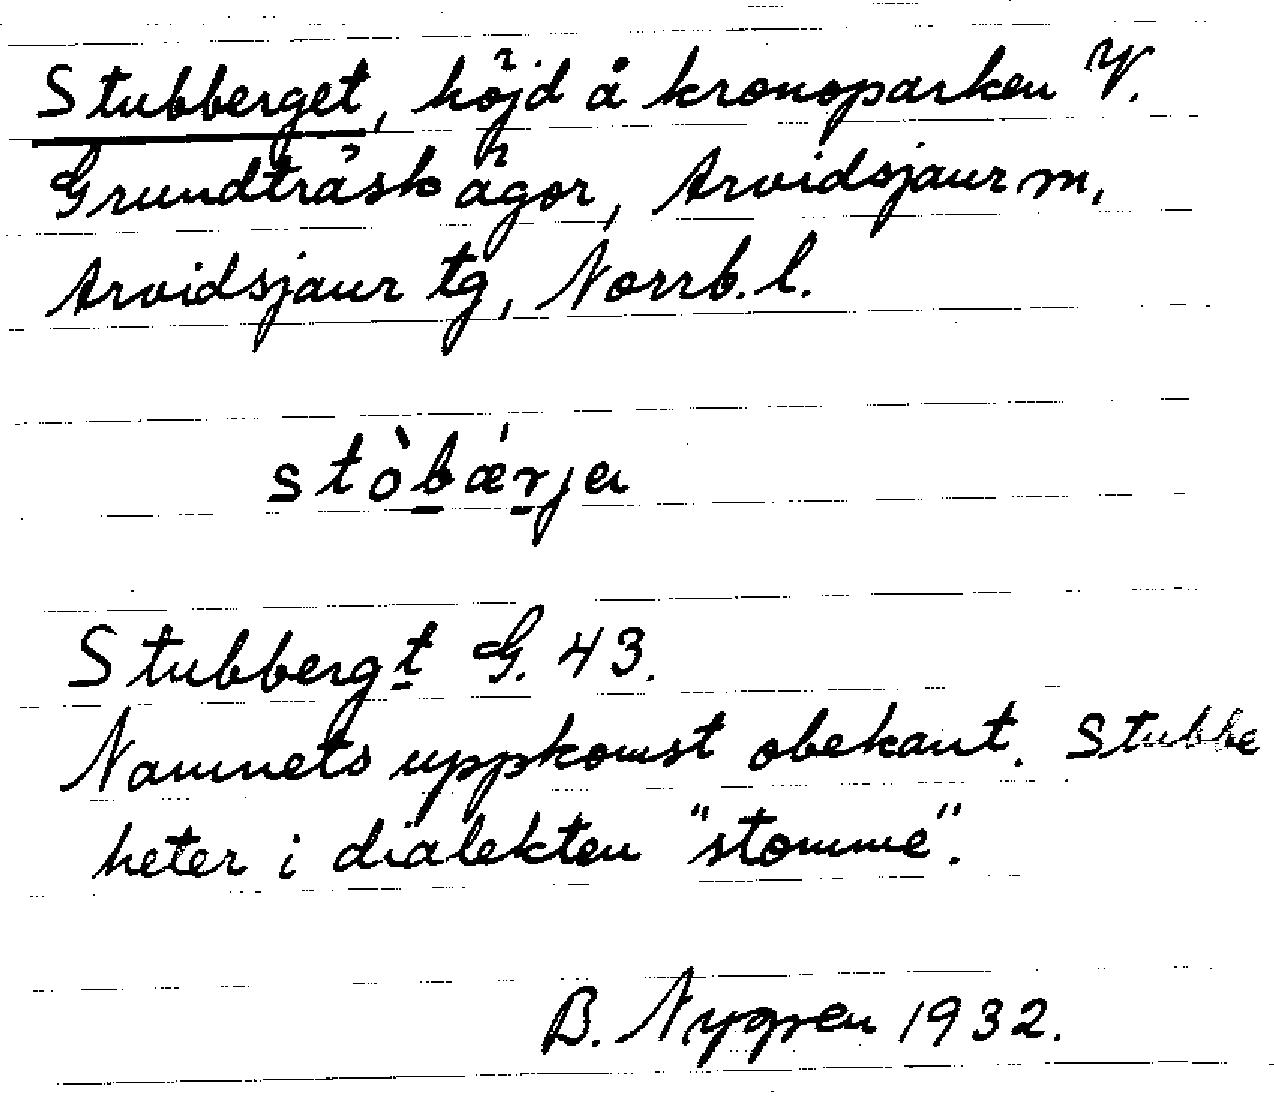 Stubberget, höjd å kronoparken V.
Grundträsk ägor, Arvidsjaur m,
Arvidsjaur tg, Norrb. l.
stòbǽrja
Stubbergt G. 43.
Namnets uppkomst obekant. Stubbe
heter i dialekten "stomme".
B. Nygren 1932.